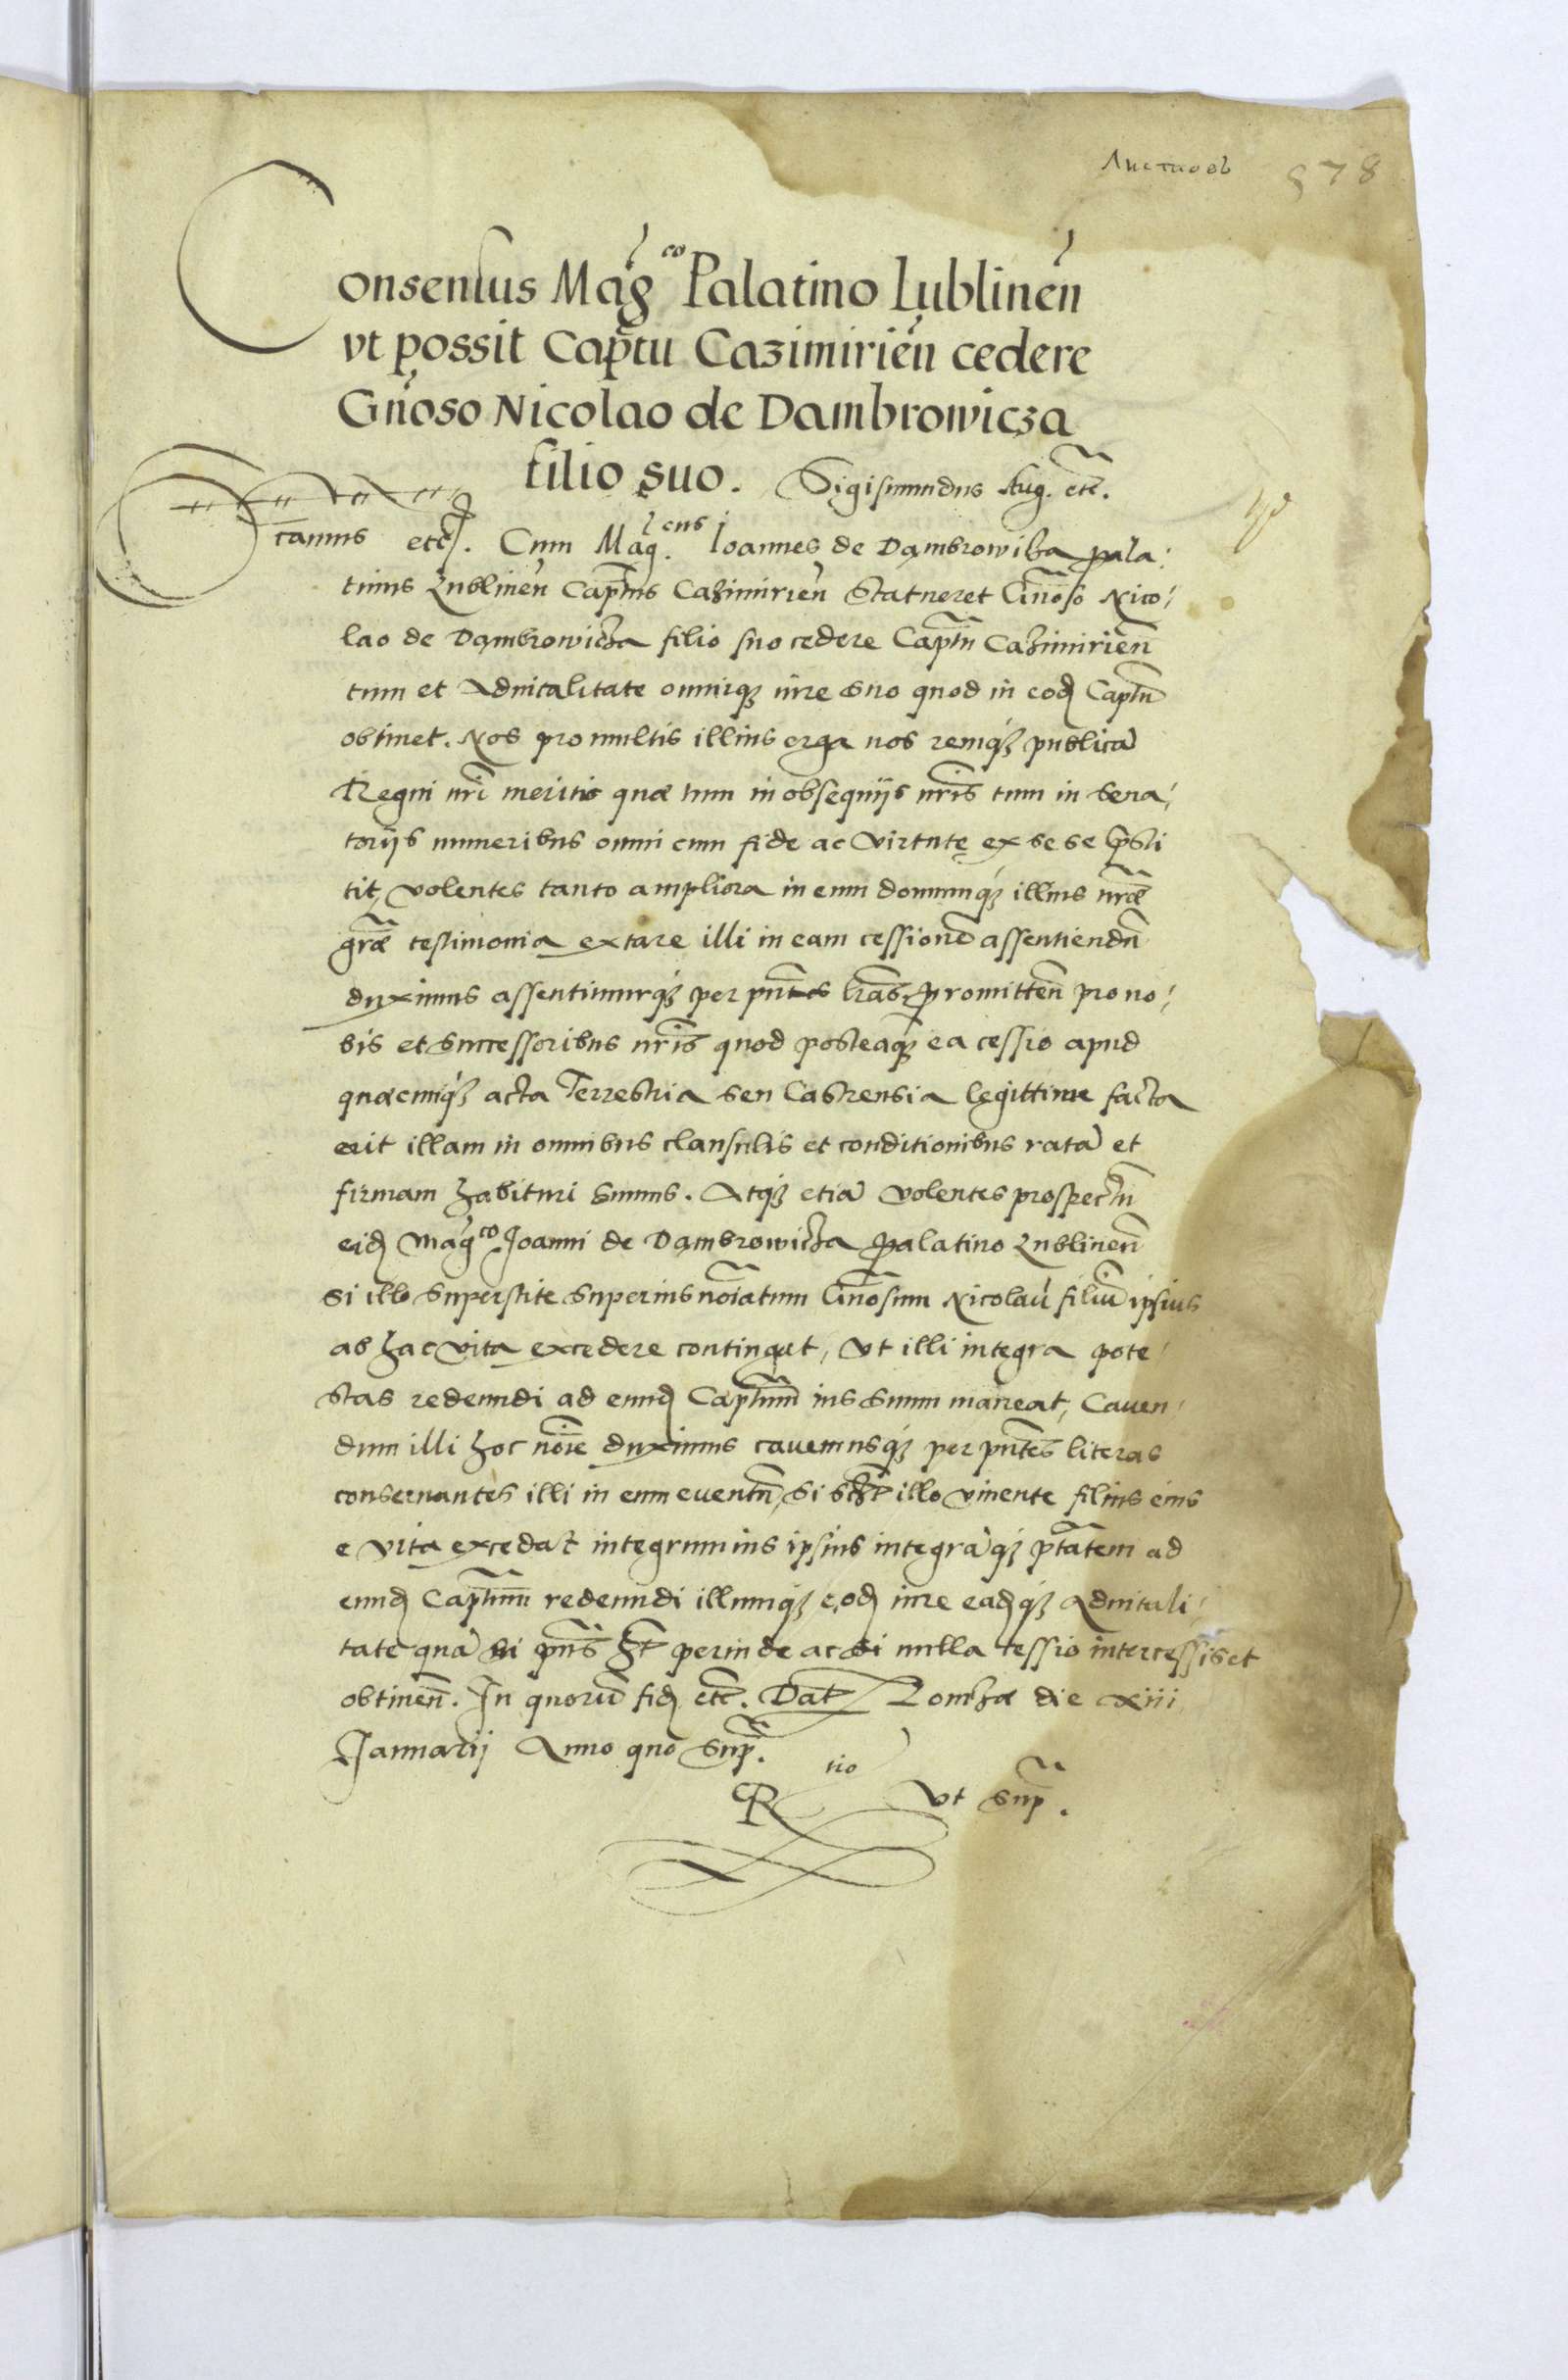 Листовъ 978
Consensus Mag̃co Palatino Lublineñ
vt possit Cap̃tu Cazimirieñ cedere
Gñoso Nicolao de Dambrowicza
filio suo. Sigismundus Aug. etc̃.
etc. Cum Mag.cus Ioannes de Dąmbrowiza pala:
tinus Lublineñ Cap̃tus Cazimirieñ Statueret Gñoso Nico:
lao de Dąmbrowicza filio suo cedere Cap̃tũ Cazimirieñ
cum et Aduitalitate omniq; iure suo quod in eod Captũ
obtinet. Nos pro multis illius erga nos remq; publicã
Regni nr̃i meritis quæ tum in obsequijs nr̃is tum in sena:
torijs muneribus omni cum fide ac virtute ex se se p̃sti
tit, volentes tanto ampliora in eum domumq; illius nr̃æ
gr̃æ testimonia extare illi in eam cessionẽ assentiendũ
duximus assentimurq; per pñtes lr̃as, promitteñ pro no:
bis et successoribus nr̃is quod posteaq; ea cessio apud
quæcunq; acta Terrestria seu Castrensia legittime facta
erit illam in omnibus clausulis et conditionibus ratã et
firmam habituri sumus. Atq; etiã volentes prospectũ
eid Mag̃co Joanni de Dąmbrowicza palatino Lublineñ
si illo superstite superius noĩatum Gñosum Nicolaũ filiũ ipsius
ab hac vita excedere contingat, vt illi integra pote:
stas redeundi ad eund Cap̃tum ius suum maneat, Caven:
dum illi hoc noĩe duximus cavemusq; per pñtes literas
conseruantes illi in eum eventũ, si sct̃ illo viuente filius eius
e vita excedat integrum ius ipsius integrãq; ptãtem ad
eund Cap̃tum redeundi illumq; eod iure eadq; Aduitali:
tate quã in pñs ht̃ perinde ac si nulla cessio intercessisset
obtineñ. In quorũ fid etc̃. Dat̃ Lomzæ die xiii
Januarij Anno quo sup̃.
Rtio vt sup̃.